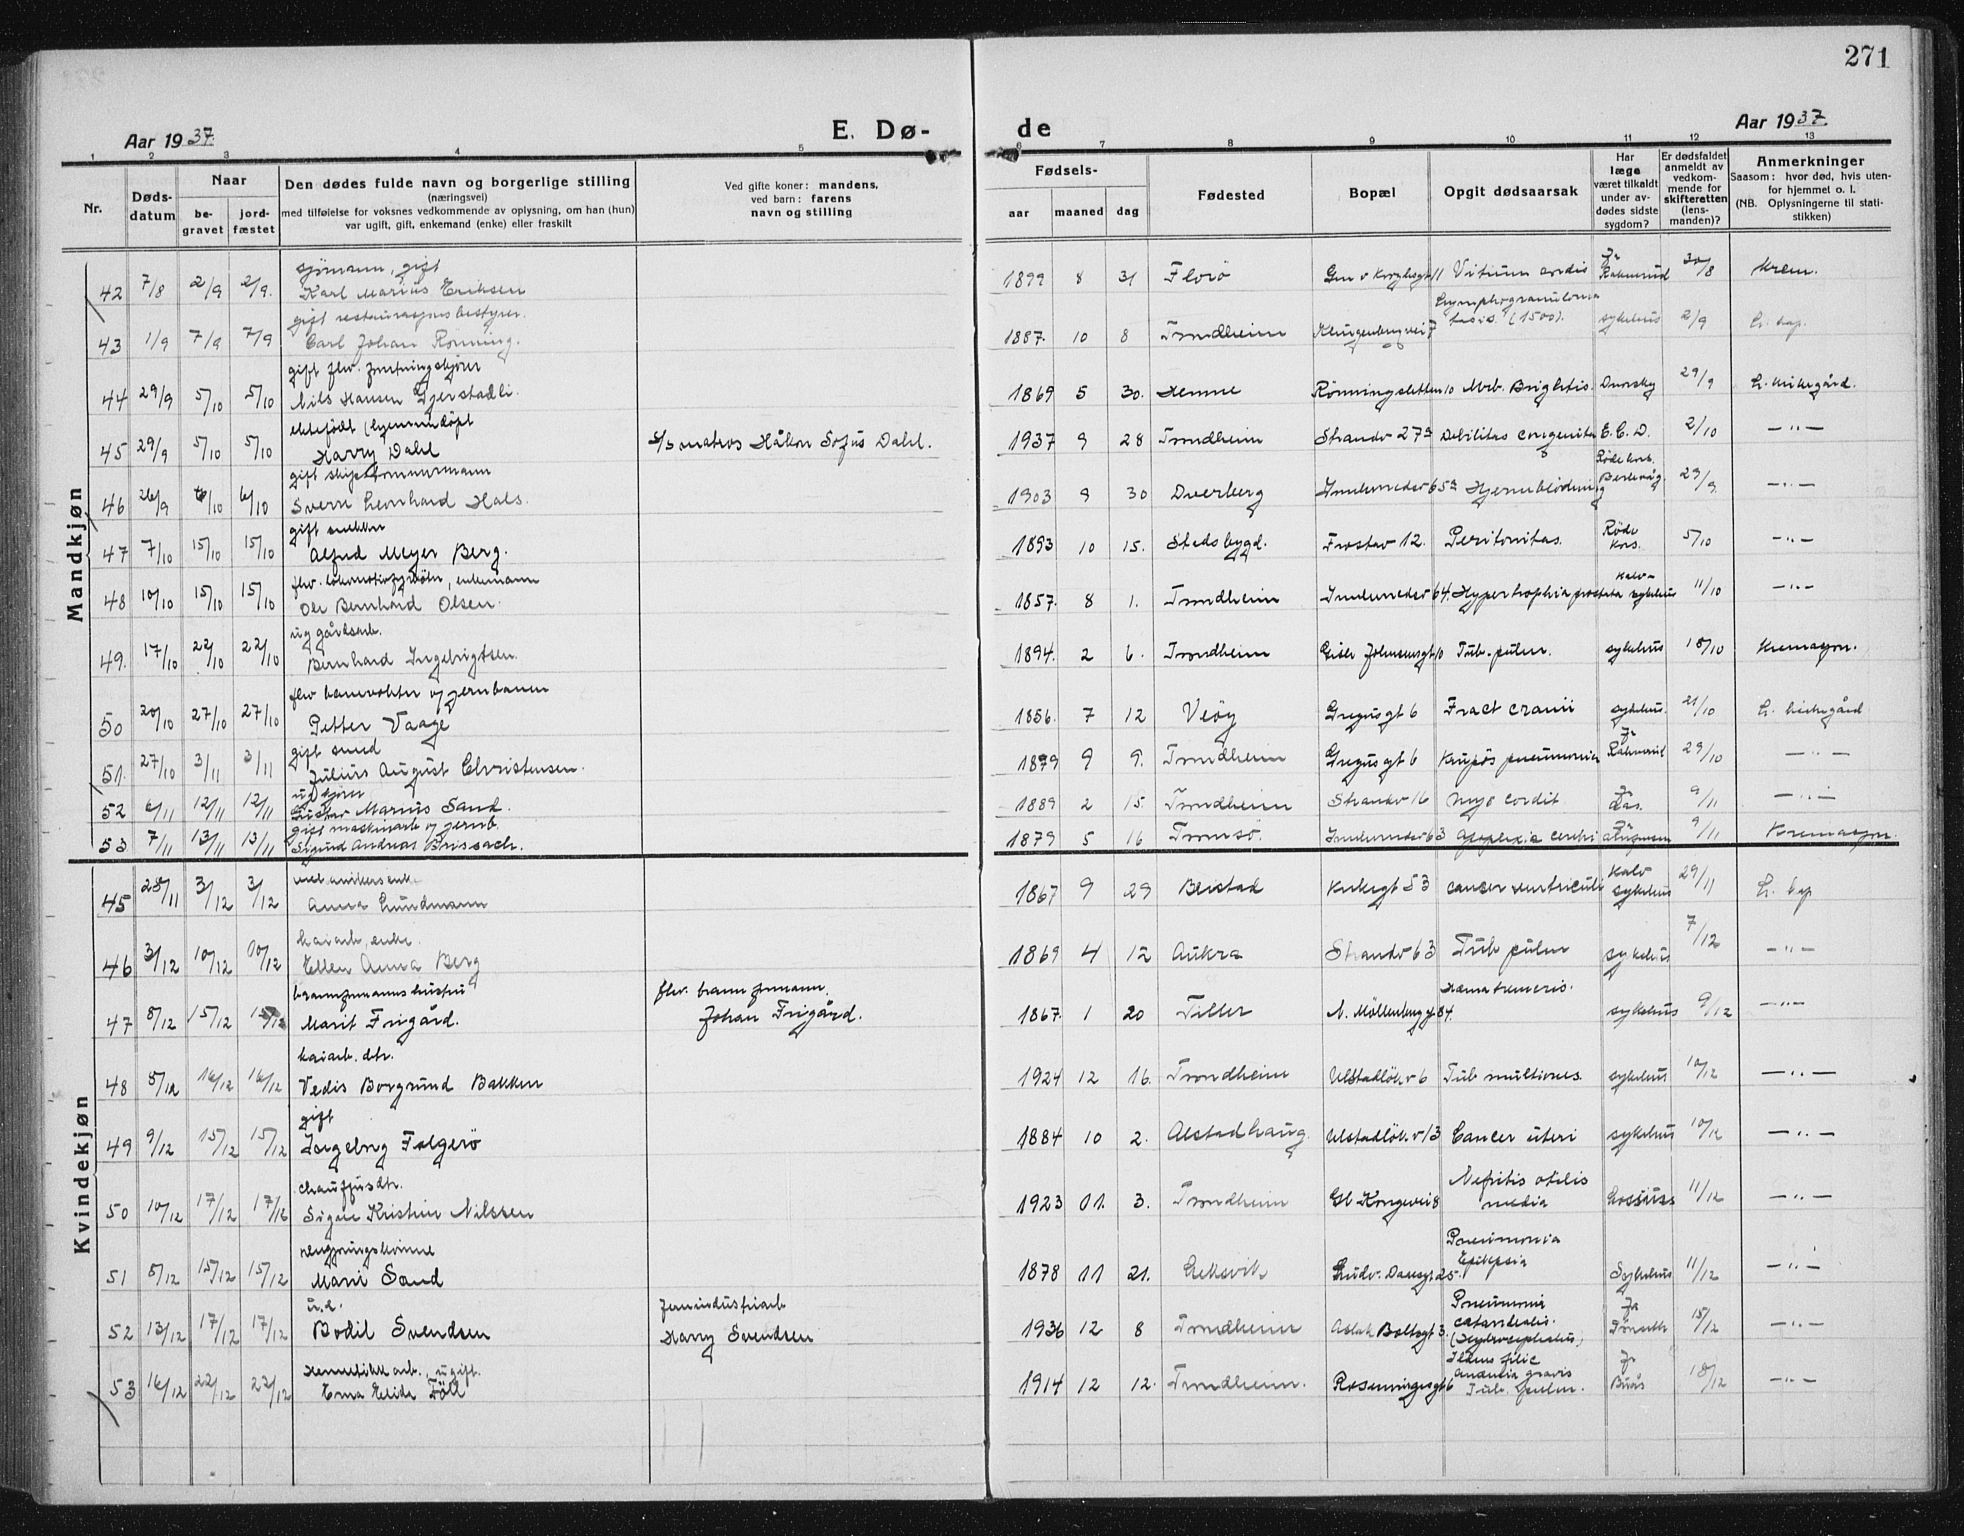 271
Aar 1937.
E. Dø-
de
Aar 1937.
1 2 3 4 5 6 7 8 9 10 11 12 13
Nr.
Døds-
datum
Naar
be-
gravet
jord-
fæstet
Den dødes fulde navn og borgerlige stilling
(næringsvei)
med tilføielse for voksnes vedkommende av oplysning, om han (hun)
var ugift, gift, enkemand (enke) eller fraskilt
Ved gifte koner: mandens,
ved barn: farens
navn og stilling
Fødsels-
aar maaned dag
Fødested
Bopæl
Opgit dødsaarsak
Har
læge
været tilkaldt
under av-
dødes sidste
sygdom?
Er dødsfaldet
anmeldt av
vedkom-
mende for
skifteretten
(lens-
manden)?
Anmerkninger
Saasom: hvor død, hvis uten-
for hjemmet o. l.
(NB. Oplysningerne til stati-
stikken)
Mandkjøn
sjømann, gift
42 7/8 2/9 2/9. Karl Marius Eriksen 1899 8 31 Florø Vitium cordis 30/8 Krem.
gift restaurasjonsbestyrer.
43 1/9 7/9 7/9 Carl Johan Rønning. 1887. 10 8 Trondheim Klingenbergvei 7 (1500). sykehus 2/9 L. kap.
gift flv. forretningskjører
44 29/9 5/10 5/10 Nils Hansen Gjerstadli. 1869 5 30. Hemne Rønningsletten 10 Mrb. Brightis. 29/9 L. kirkegård.
ektefødt (hjemmedøpt
45 29/9 5/10 5/10 Harry Dahl matros Håkon Sofus Dahl. 1937 9 28 Trondheim Strandv 27a Debilitas congenita E. C. D. 2/10 —"—
gift skipstømmermann
46 26/9 6/10 6/10 Sverre Leonhard Hals. 1903 9 30 Dverberg Innherredsv 65a Hjerneblødning Røde kors. Berlevåg 29/9. —"—
gift snekker
47 7/10 15/10 15/10 Alfred Meyer Berg. 1893 10 15. Stadsbygd. Frostav 12. Peritonitas. Røde kors. 5/10 —"—
flv. lokomotivfyrbøter, enkemann
48 10/10 15/10 15/10 Ole Bernhard Olsen. 1857. 8 1. Trondheim Innherredsv 64. Hypertrophia prostata sykehus 11/10 —"—
ug gårdsarb.
49. 17/10 22/10 22/10 Bernhard Ingebrigtsen. 1894. 2 6. Trondheim Gisle Johnsonsgt 10 Tub. pulm. sykehus 18/10 Kremasjon.
flv banevokter v jernbanen
50 20/10 27/10 27/10 Petter Vaage 1856. 7 12 Veøy Gregusgt 6 Fract cranii sykehus. 21/10 L. kirkegård
gift smed
51. 27/10 3/11 3/11 Julius August Christensen. 1879 9 9. Trondheim Gregusgt 6 Krupøs pneumonia Ja 29/10 —"—
ug kjører
52 6/11 12/11 12/11 Gustav Marius Sand. 1889 2 15. Trondheim Strandv 16 Myo cordit Ja 9/11 —"—
gift maskinarb v jernb.
53 7/11 13/11 13/11 Sigurd Andreas Brissach. 1879 5 16 Tromsø. Innherredsv 63 Apoplexia cerebri Ja 9/11 Kremasjon.
Kvindekjøn
45 28/11 3/12 3/12 Anna Gundersen 1867 9 29 Beistad Kirkegt 53 Cancer ventriculi sykehus 29/11 L. kap
kaiarb, enke.
46 3/12 10/12 10/12 Ellen Anna Berg 1869 4 12 Aukra Strandv 63 Tub pulm sykehus 7/12 —"—
brannformanns hustru flv. brannformann.
47 8/12 15/12 15/12 Marit Frigård. Johan Frigård. 1867. 1 20 Tiller N. Möllenberg g 84. Hæmatemesis. sykehus 9/12 —"—
kaiarb. dtr.
48 8/12 16/12 16/12 Vedis Borgrund Bakken 1924 12 16. Trondheim Ulstadløk v 6 Tub multiores. sykehus 10/12 —"—
gift
49 9/12 15/12 15/12 Ingeborg Falgerø 1884 10 2. Alstadhaug. Ulstadløk v 13 Cancer uteri sykehus 10/12 —"—
chaufførs dtr.
50 10/12 17/12 17/12 Signe Kristine Nilssen 1923 01. 3. Trondheim Gl Kongevei 8 Nefritis otitis media 11/12 —"—
rengjøringskvinne
51 8/12 15/12 15/12 Marie Sand 1878 11 21. Leksvik Ludv. Daesgt 25. Pneumonia Epilepsia Sykehus 11/12 —"—
u.a. jernindustriarb
52 13/12 17/12 17/12 Bodil Svendsen Harry Svendsen 1936 12 8 Trondheim Aslak Boltsgt 3. Pneumonia catarrhalis. (Hydrocephalus) Ja 15/12 —"—
Hermetikk arb, ugift.
53 16/12 22/12 22/12 Erna Elida 1914 12 12. Trondheim. Rosenborgsgt 6 Tub. pulm. Ja Buås 18/12 —"—